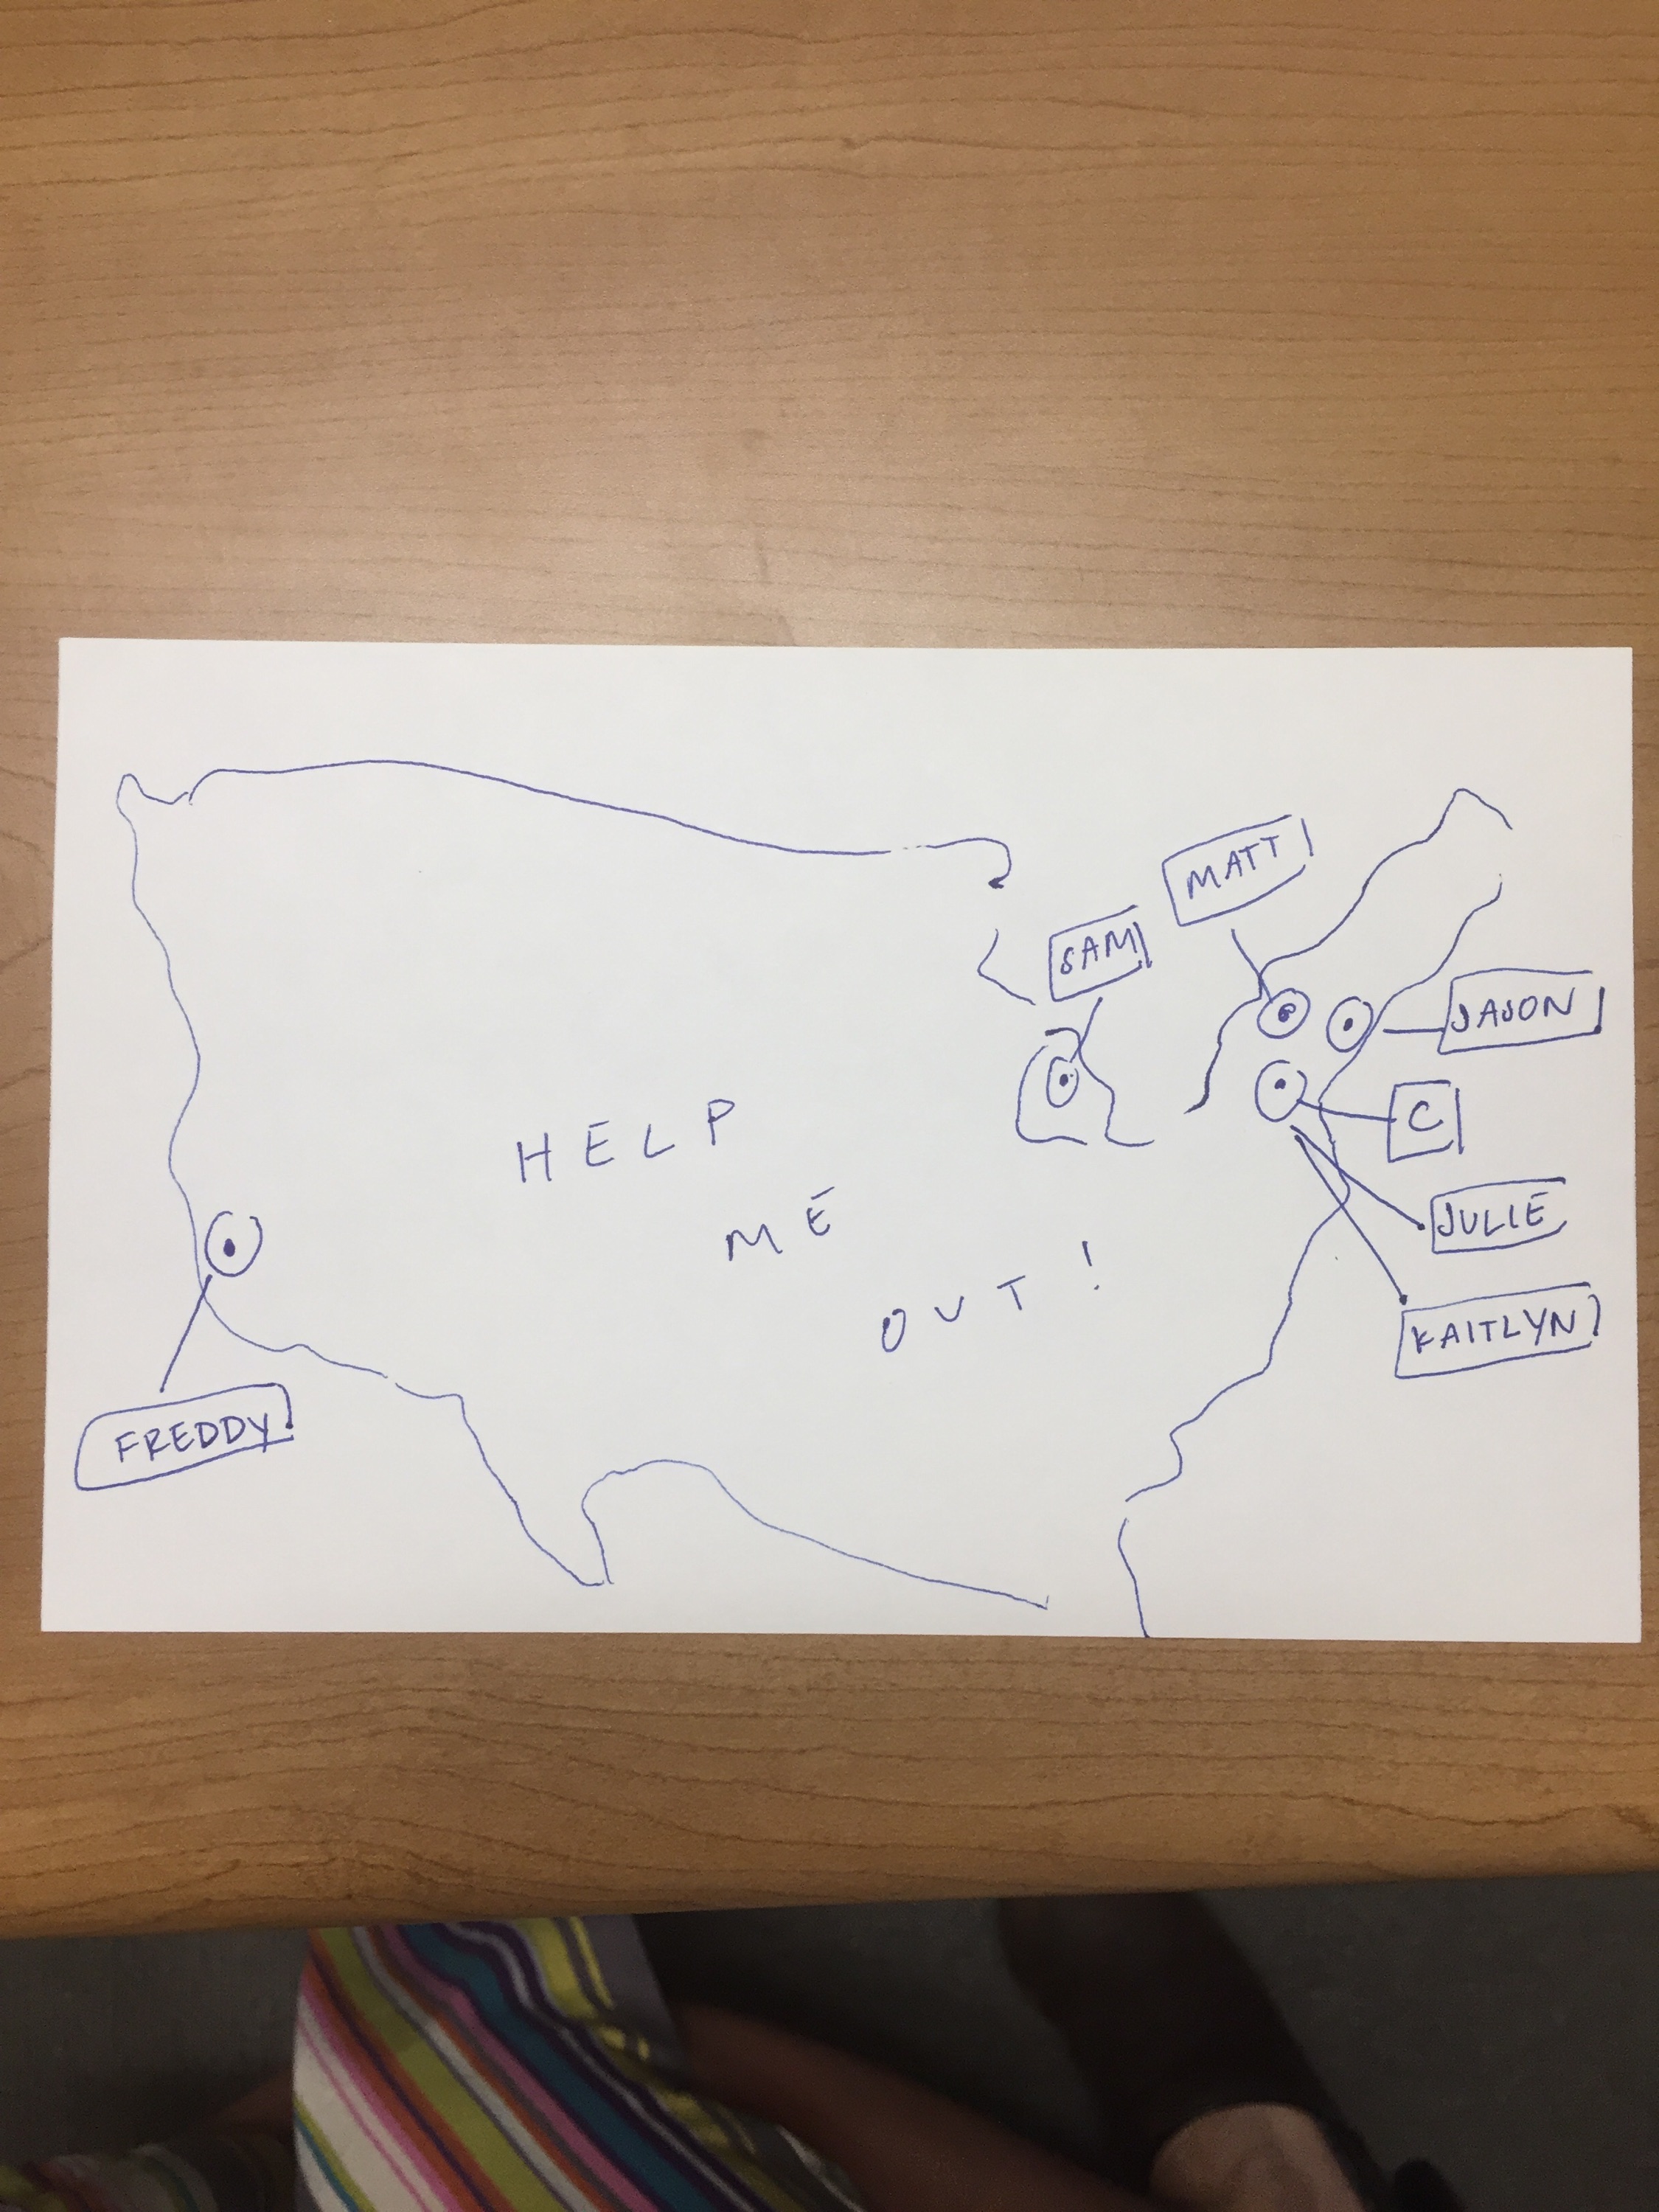 MATT
SAM
JASON
C
HELP
ME
OUT!
JULIE
KAITLYN
FREDDY